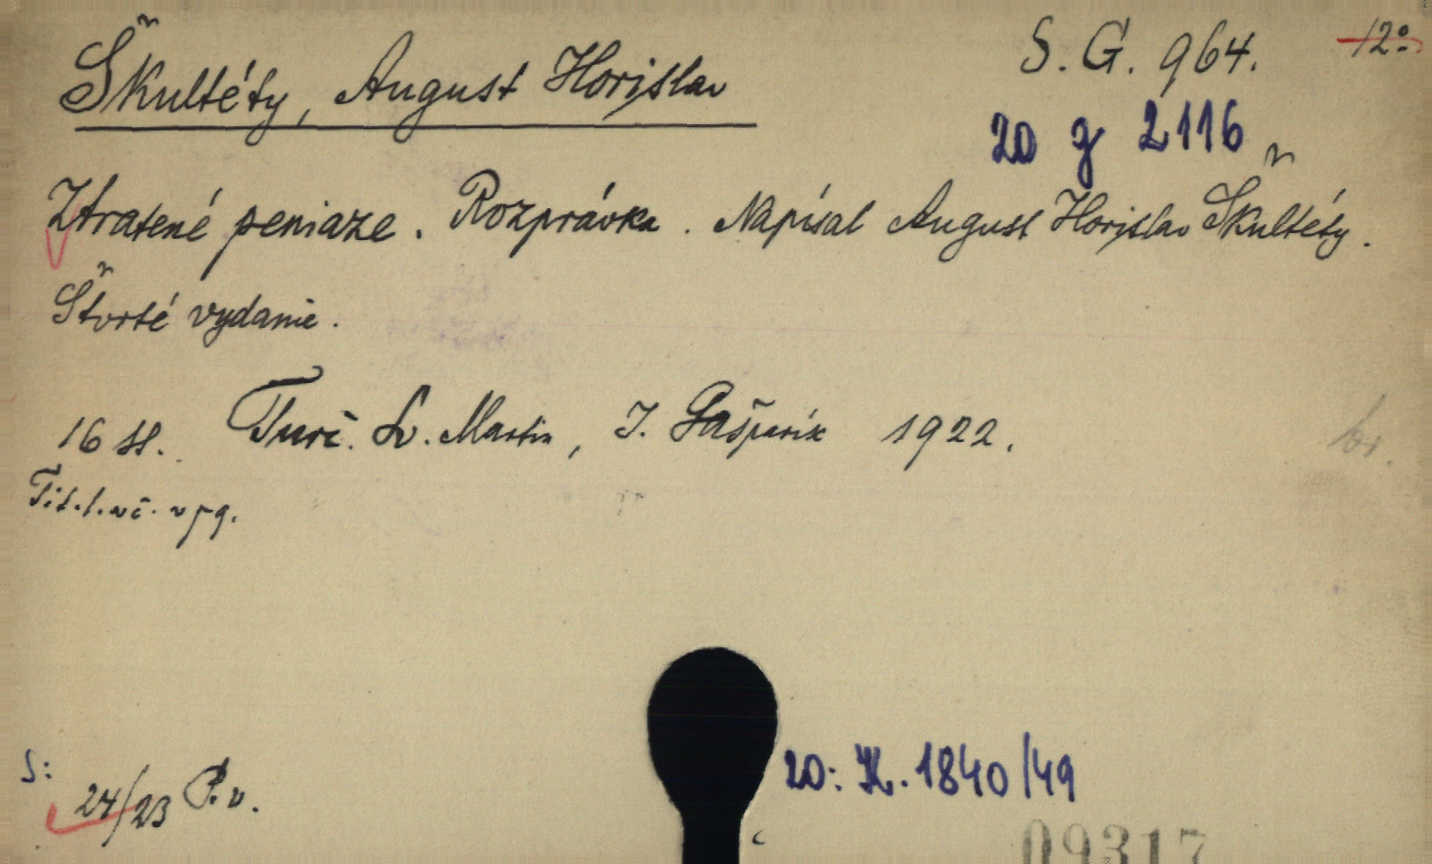 Škultéty, August Horislav
S. G. 964.
12°
20 g 2116
Ztratené peniaze. Rozprávka. Napísal August Horislav Škultéty.
Štvrté vydanie.
16 st. Turč. Sv. Martin, J. Gašparík 1922.
br.
Tit. l. vč. v pg.
S:
24/23 P. v.
20: K. 1840/49
09317